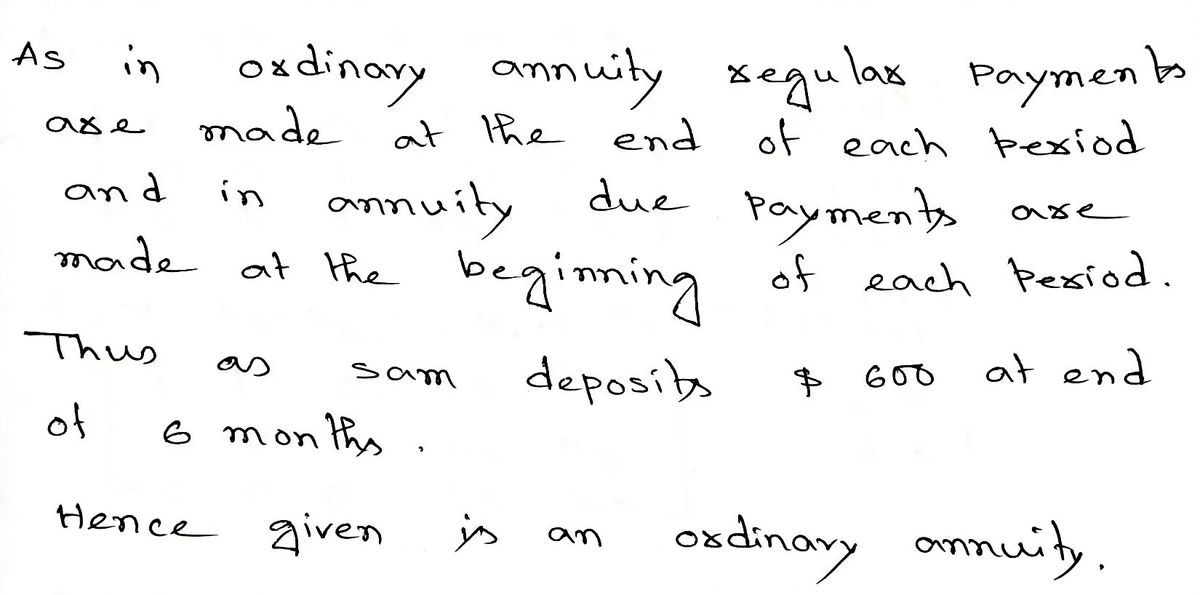 As in ordinary annuity regular payments
are made at the end of each period
and in annuity due payments are
made at the beginning of each period.
Thus as sam deposits $ 600 at end
of 6 months.
Hence given is an ordinary annuity.